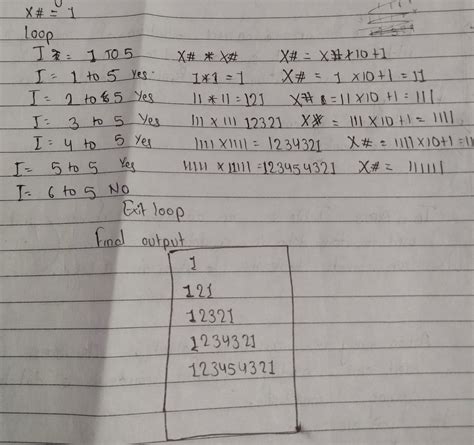 X# = 1
Loop
I = 1 TO 5 X# * X# X# = X# x 10 + 1
I = 1 to 5 Yes. 1 * 1 = 1 X# = 1 x 10 + 1 = 11
I = 2 to 5 Yes 11 * 11 = 121 X# = 11 x 10 + 1 = 111
I = 3 to 5 Yes 111 x 111 12321 X# = 111 x 10 + 1 = 1111
I = 4 to 5 Yes 1111 x 1111 = 1234321 X# = 1111 x 10 + 1 = 11
I = 5 to 5 Yes 11111 x 11111 = 123454321 X# = 111111
I = 6 to 5 NO
Exit loop
Find output
1
121
12321
1234321
123454321